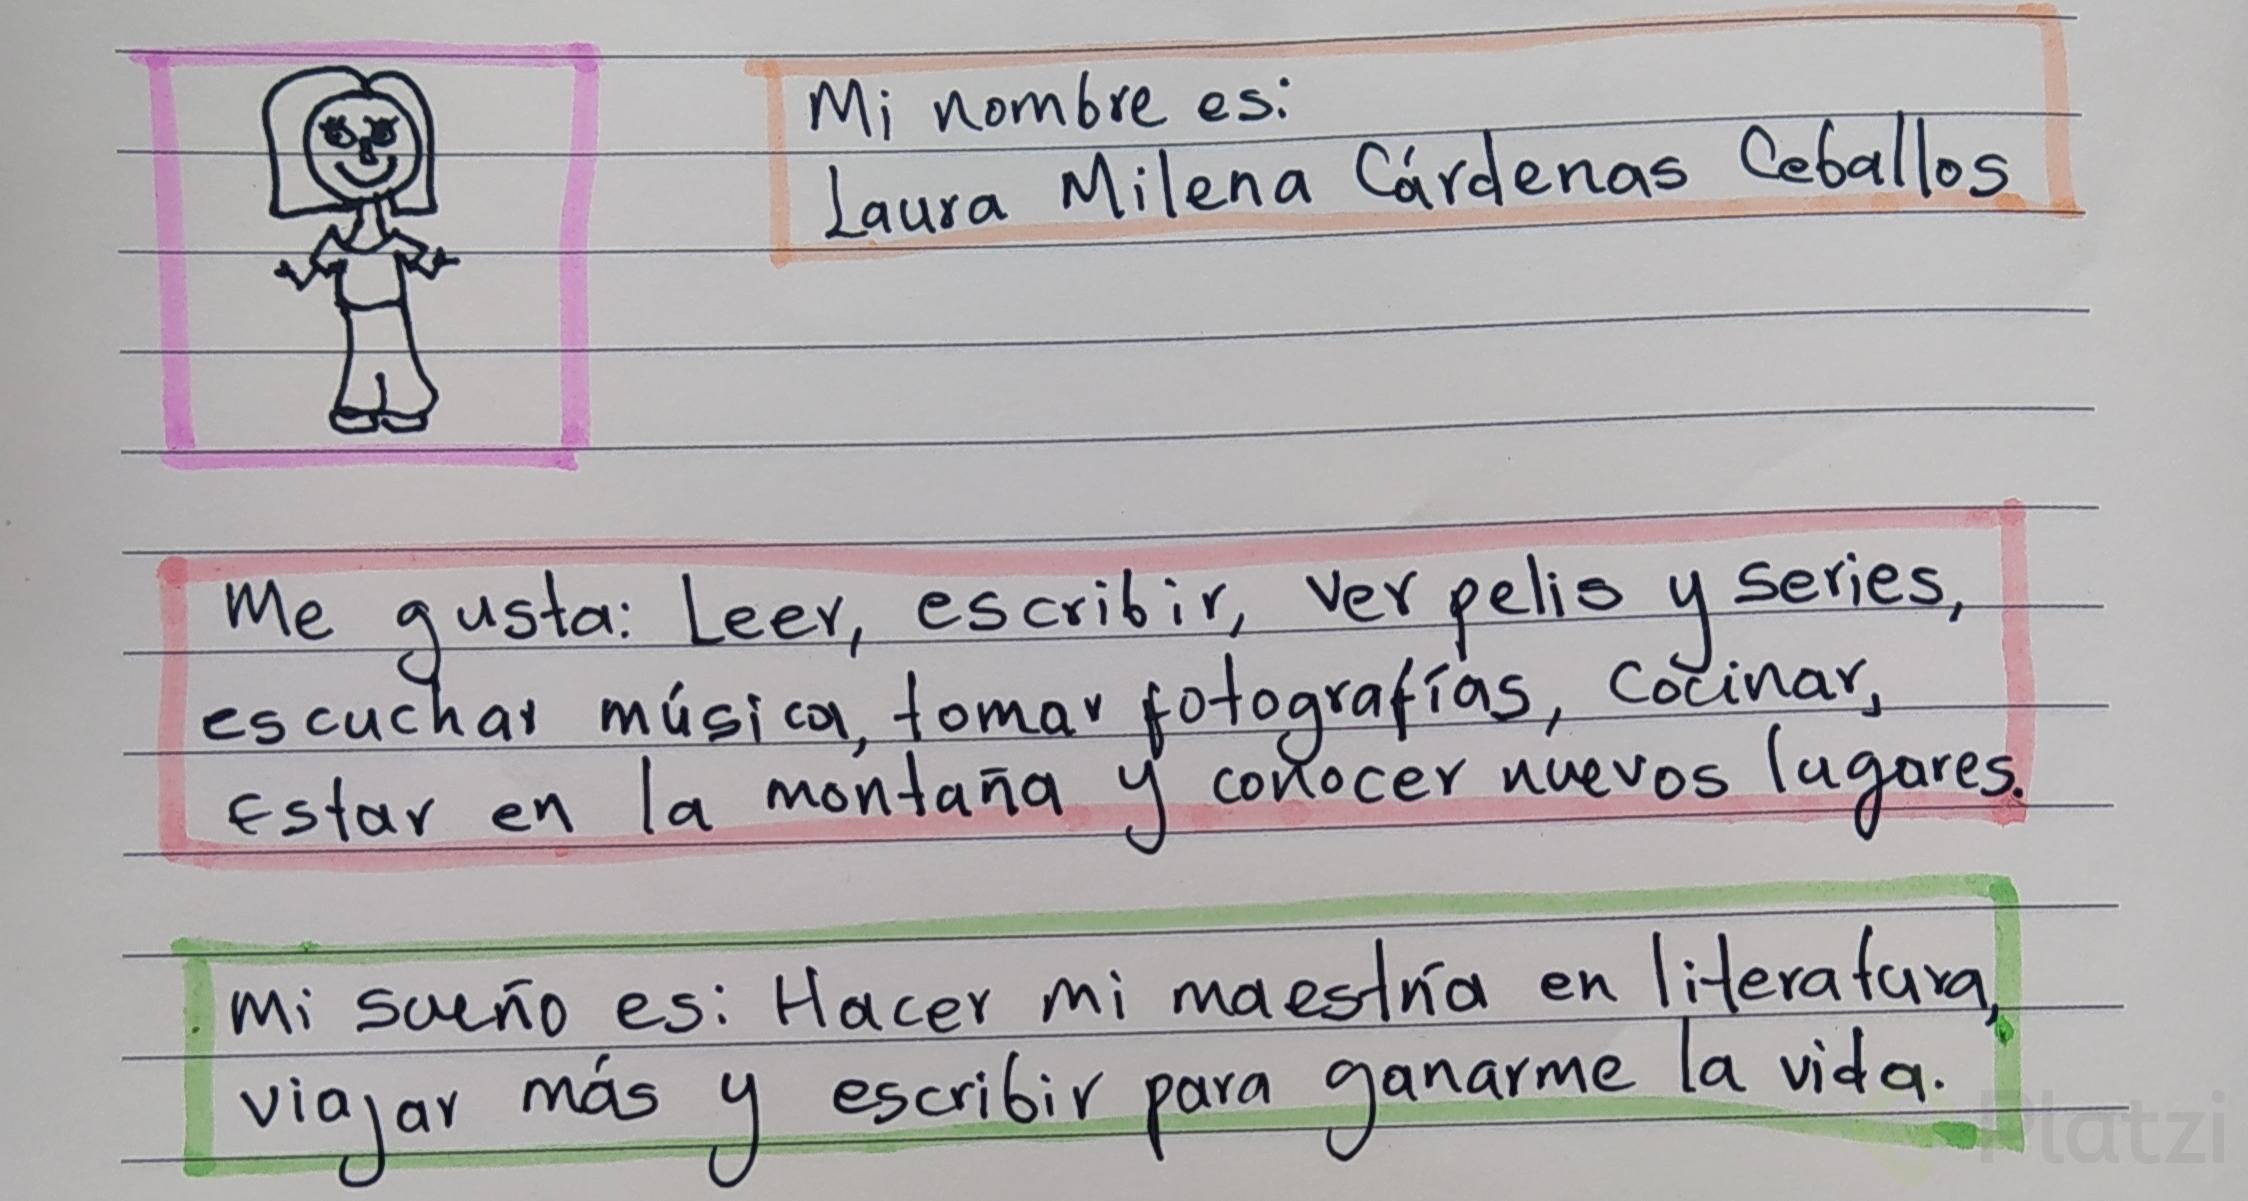 Mi nombre es:
Laura Milena Cárdenas Ceballos
Me gusta: Leer, escribir, ver pelis y series,
escuchar música, tomar fotografías, cocinar,
Estar en la montaña y conocer nuevos lugares.
Mi sueño es: Hacer mi maestría en literatura,
viajar más y escribir para ganarme la vida.
Platzi